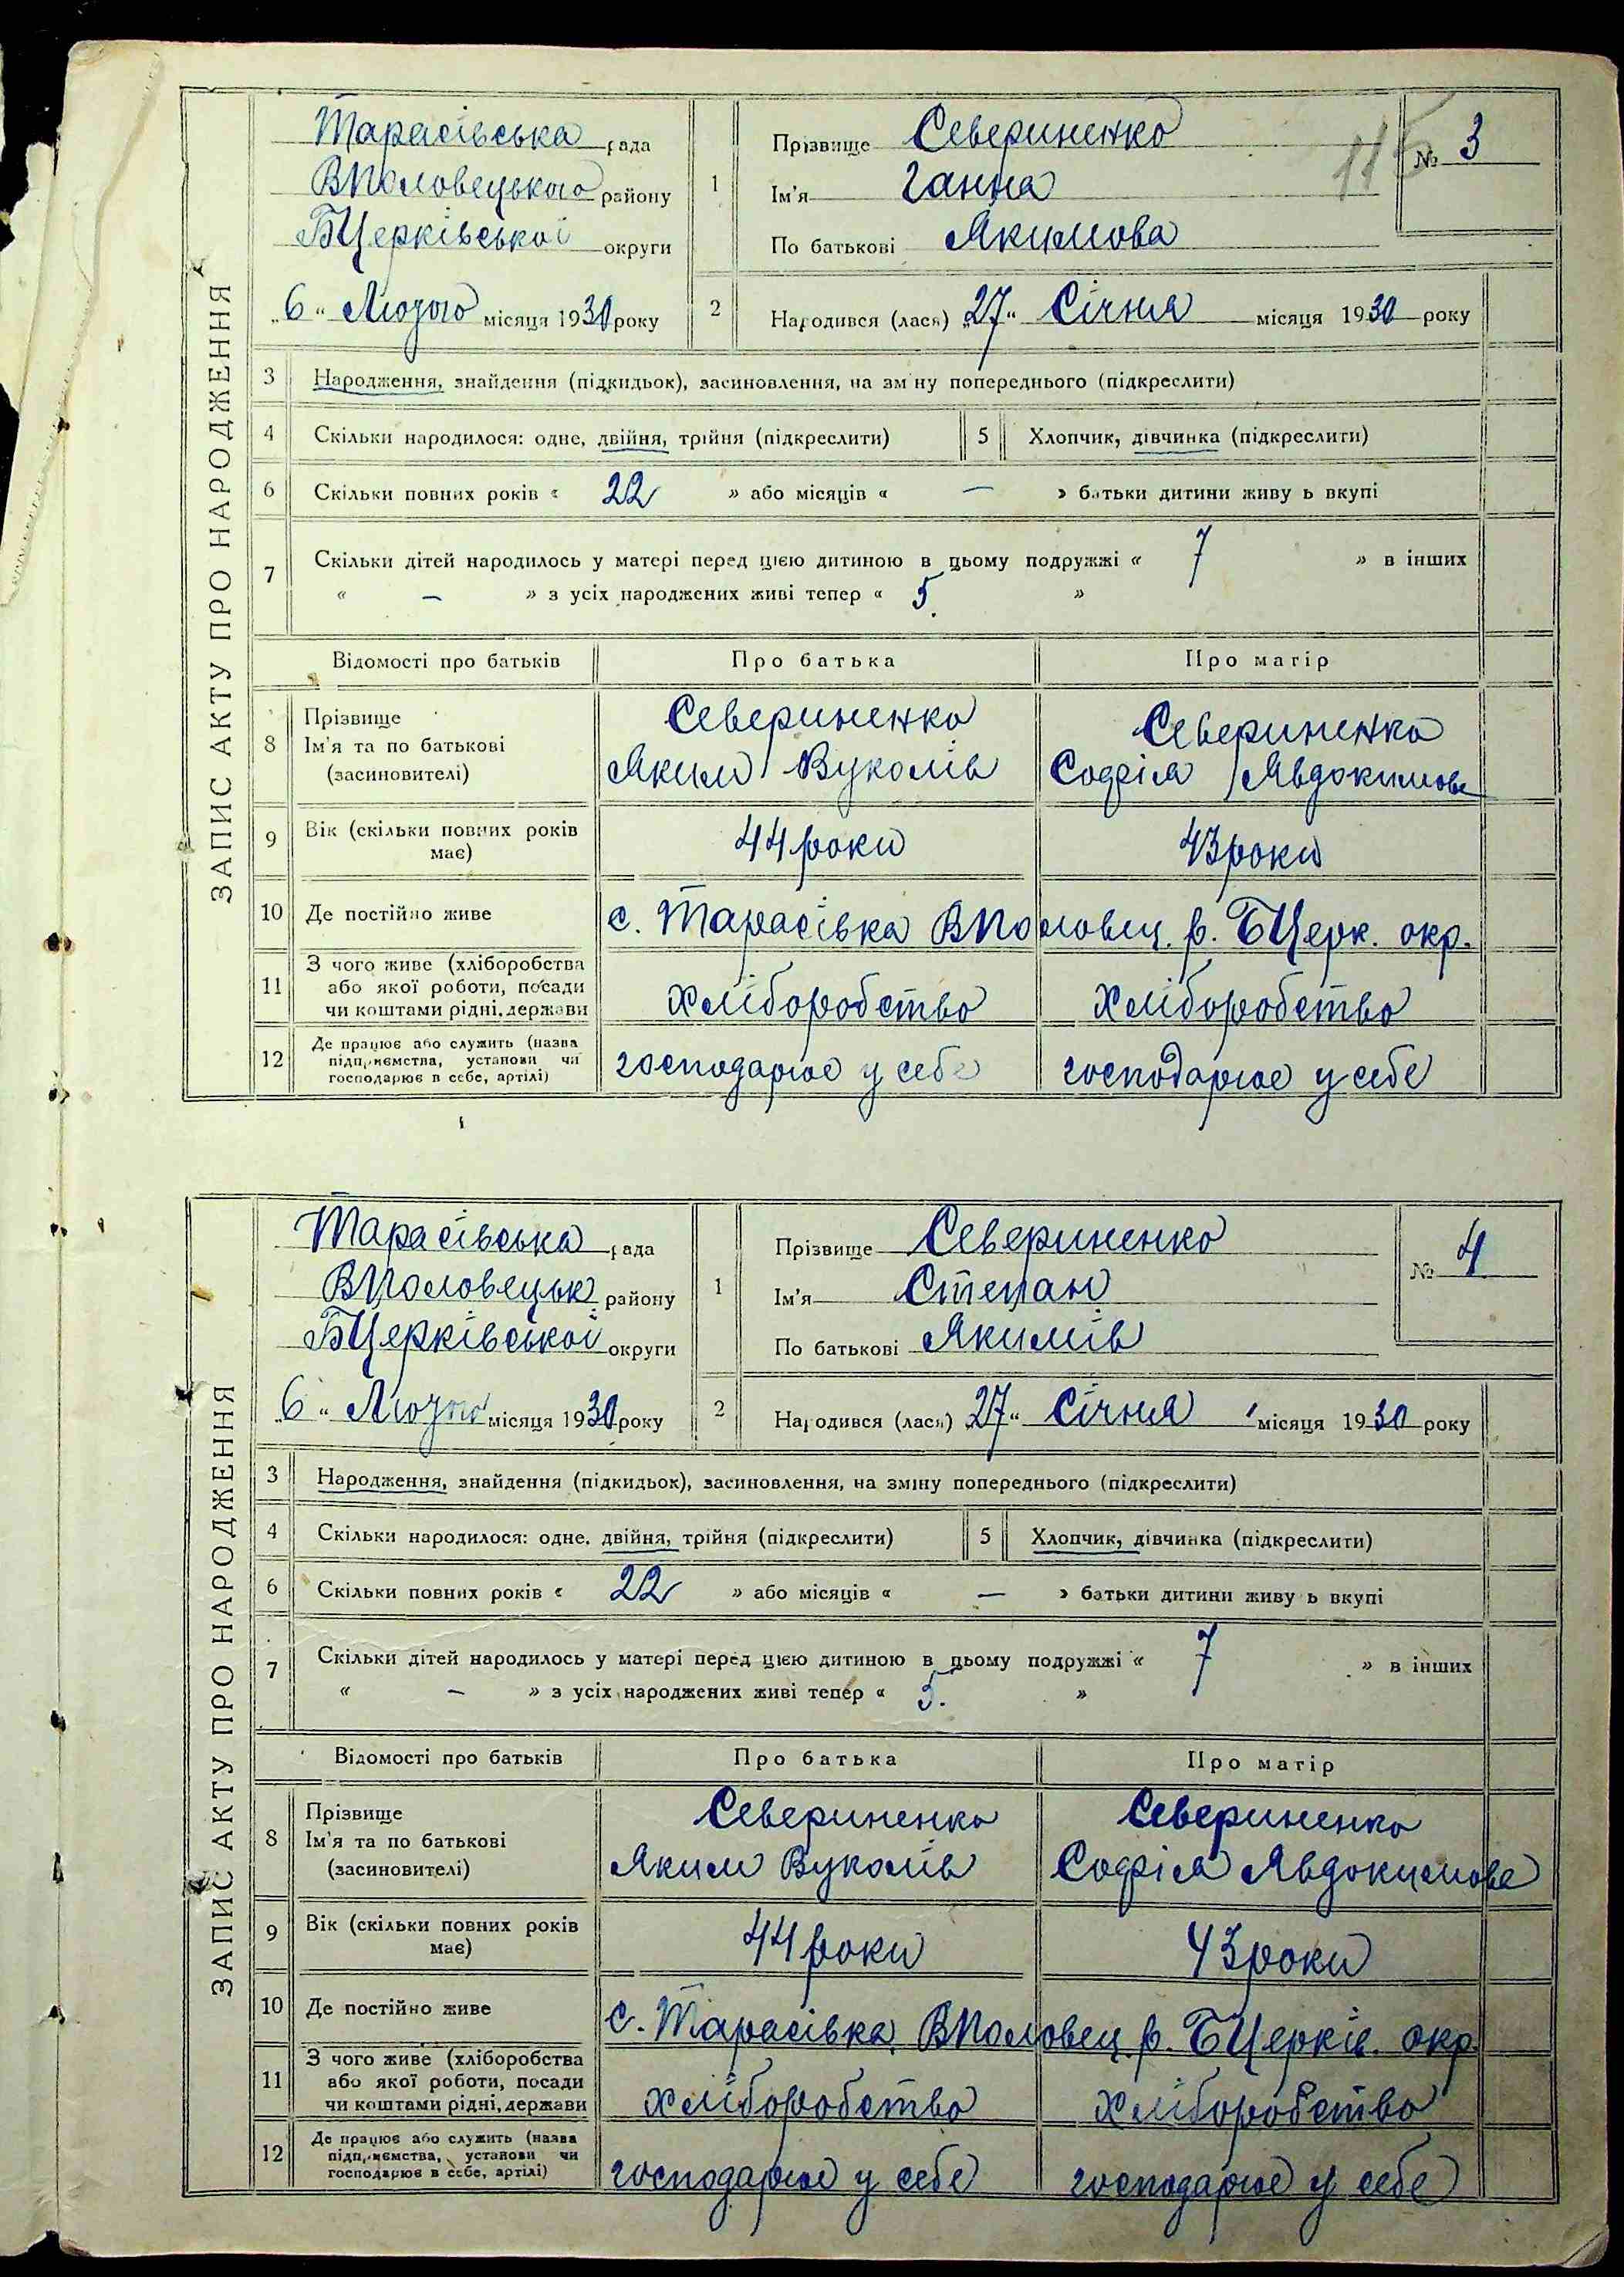 ЗАПИС АКТУ ПРО НАРОДЖЕННЯ
Тарасівська рада
ВПоловецького району
БЦерківської округи
„6“ Лютого місяця 1930 року
1
Прізвище Севериненко
Ім'я Ганна
По батькові Якимова
115
№ 3
2 Народився (лася) „27“ Січня місяця 1930 року
3 Народження, знайдення (підкидьок), засиновлення, на зм ну попереднього (підкреслити)
4 Скільки народилося: одне, двійня, трійня (підкреслити) 5 Хлопчик, дівчинка (підкреслити)
6 Скільки повних років « 22 » або місяців « — » батьки дитини живу ь вкупі
7 Скільки дітей народилось у матері перед цією дитиною в цьому подружжі « 7 » в інших
« – » з усіх народжених живі тепер « 5. »
Відомості про батьків Про батька Про матір
8 Прізвище Севериненко Севериненко
Ім'я та по батькові Яким Вуколів Софія Явдокимова
(засиновителі)
9 Вік (скільки повних років має) 44 роки 43 роки
10 Де постійно живе с. Тарасівка ВПоловец. р. БЦерк. окр.
11 З чого живе (хліборобства
або якої роботи, посади хліборобство хліборобство
чи коштами рідні, держави
12 Де працює або служить (назва
підприємства, установи чи господарює у себе господарює у себе
господарює в себе, артілі)
ЗАПИС АКТУ ПРО НАРОДЖЕННЯ
Тарасівська рада
ВПоловецьк. району
БЦерківської округи
„6“ Лютого місяця 1930 року
1
Прізвище Севериненко
Ім'я Степан
По батькові Якимів
№ 4
2 Народився (лася) „27“ Січня місяця 1930 року
3 Народження, знайдення (підкидьок), засиновлення, на зміну попереднього (підкреслити)
4 Скільки народилося: одне, двійня, трійня (підкреслити) 5 Хлопчик, дівчинка (підкреслити)
6 Скільки повних років « 22 » або місяців « — » батьки дитини живу ь вкупі
7 Скільки дітей народилось у матері перед цією дитиною в цьому подружжі « 7 » в інших
« – » з усіх народжених живі тепер « 5. »
Відомості про батьків Про батька Про матір
8 Прізвище Севериненко Севериненко
Ім'я та по батькові Яким Вуколів Софія Явдокимова
(засиновителі)
9 Вік (скільки повних років має) 44 роки 43 роки
10 Де постійно живе с. Тарасівка ВПоловец. р. БЦерків. окр.
11 З чого живе (хліборобства
або якої роботи, посади хліборобство хліборобство
чи коштами рідні, держави
12 Де працює або служить (назва
підприємства, установи чи господарює у себе господарює у себе
господарює в себе, артілі)